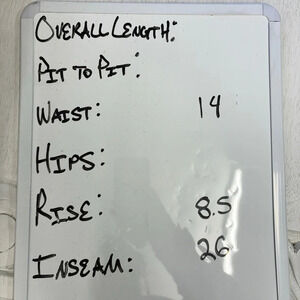 OVERALL LENGTH:
PIT TO PIT:
WAIST: 14
HIPS:
RISE: 8.5
INSEAM: 26